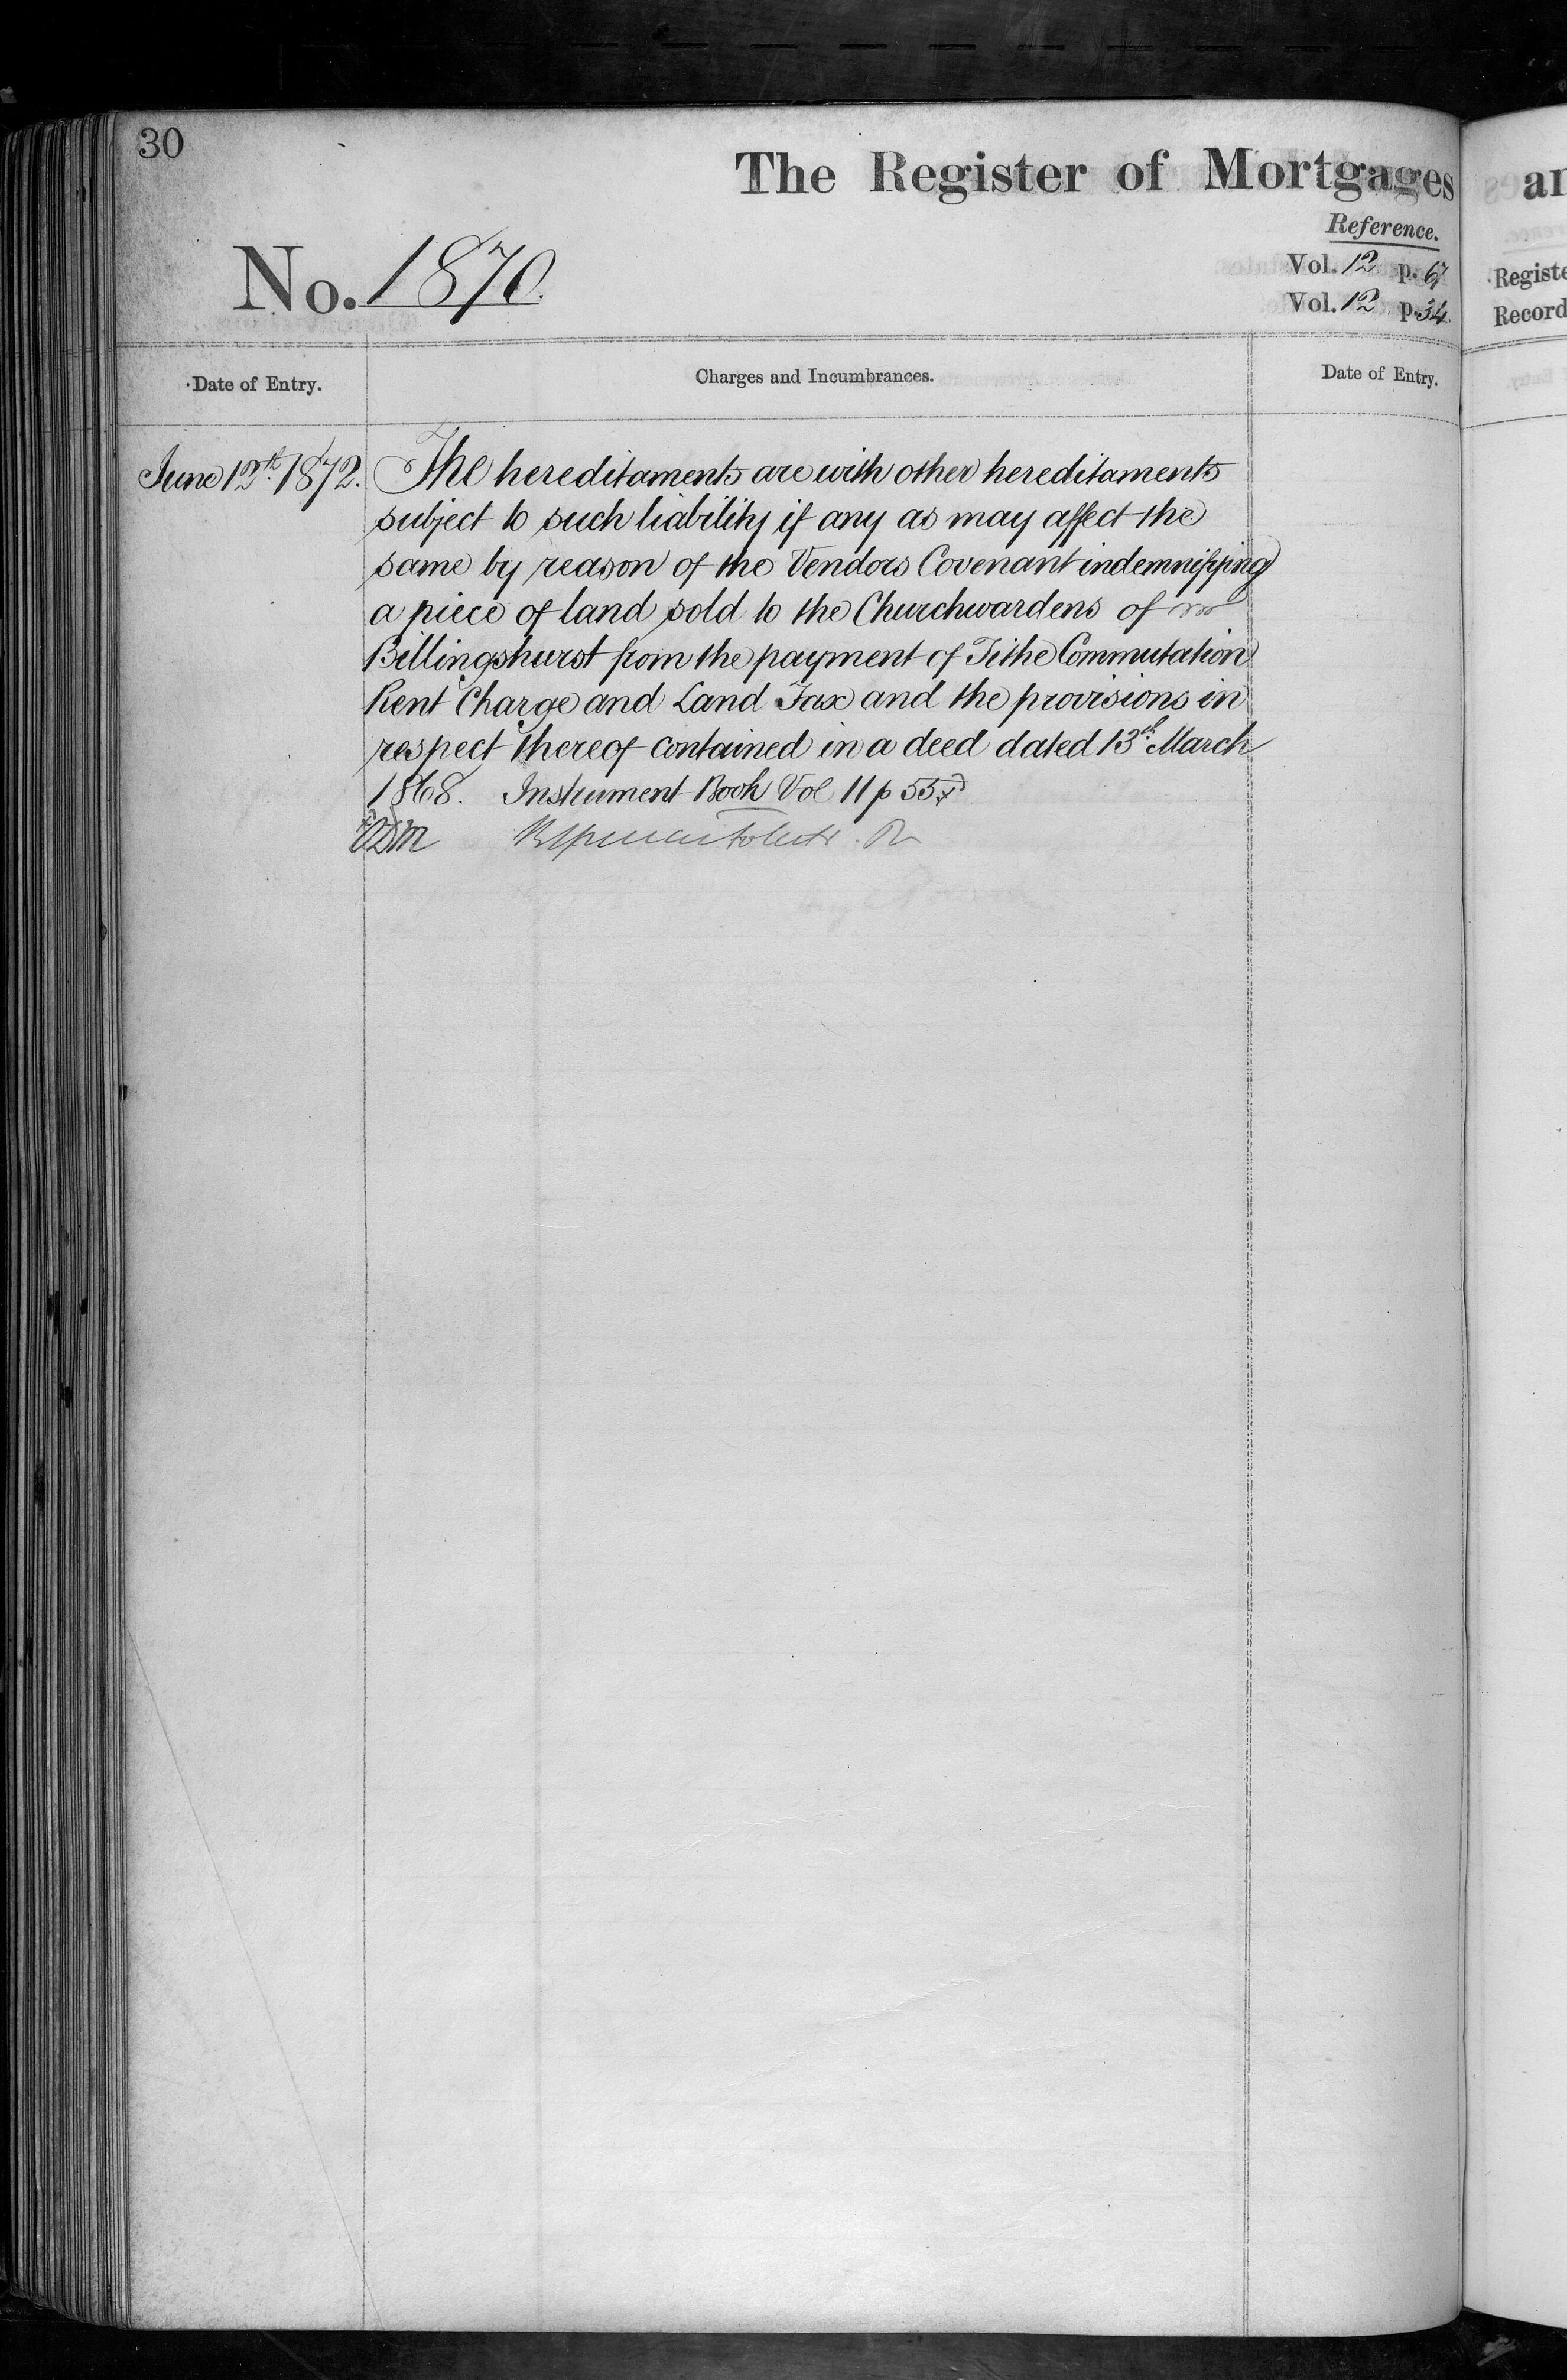 30
The Register of Mortgages
Reference.
No. 1870.
Vol. 12 p. 67
Vol. 12 p. 34
Date of Entry.
Charges and Incumbrances.
Date of Entry.
June 12th 1872.
The hereditaments are with other hereditaments
subject to such liability if any as may affect the
same by reason of the Vendors Covenant indemnifying
a piece of land sold to the Churchwardens of
Billingshurst from the payment of Tithe Commutation
Rent Charge and Land Tax and the provisions in
respect thereof contained in a deed dated 13th March
1868. Instrument Book Vol 11 p 55
an
Registe
Record